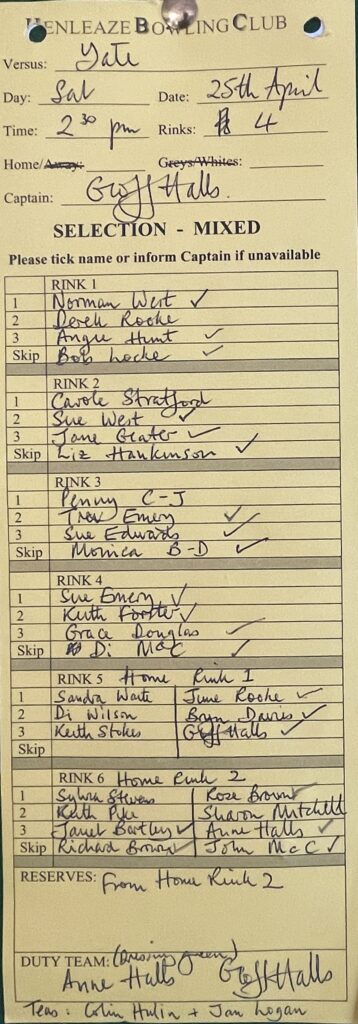 HENLEAZE BOWLING CLUB
Versus: Yate
Day: Sat Date: 25th April
Time: 2 30 pm Rinks: 4
Home/Away: Greys/Whites:
Captain: Geoff Halls
SELECTION - MIXED
Please tick name or inform Captain if unavailable
RINK 1
1 Norman West ✓
2 Derek Rooke
3 Angie Hunt ✓
Skip Bob Locke ✓
RINK 2
1 Carole Stratford
2 Sue West ✓
3 Jane Geater ✓
Skip Liz Hankinson ✓
RINK 3
1 Penny C-J
2 Trev Emery ✓
3 Sue Edwards ✓
Skip Monica B-D ✓
RINK 4
1 Sue Emery ✓
2 Keith Forster ✓
3 Grace Douglas ✓
Skip Di McC ✓
RINK 5 Home Rink 1
1 Sandra Waite June Rooke ✓
2 Di Wilson Bryn Davies ✓
3 Keith Stokes Geoff Halls ✓
Skip
RINK 6 Home Rink 2
1 Sylvia Stevens Rose Brown ✓
2 Keith Pyke Sharon Mitchell
3 Janet Bartley ✓ Anne Halls ✓
Skip Richard Brown ✓ John McC ✓
RESERVES: From Home Rink 2
DUTY TEAM: (Dressing green)
Anne Halls Geoff Halls
Teas: Colin Hulin + Jan Logan